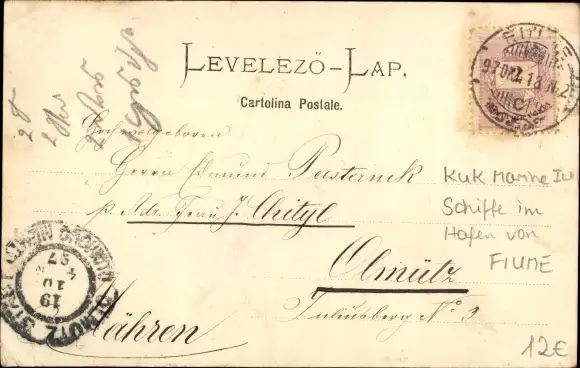 LEVELEZŐ-LAP.
Cartolina Postale.
FIUME
97 OKT. 18
Hochwolgeboren
Herrn Edmund Pasternek
p. Adr. Frau J. Chityl
Olmütz
Juliusberg No 3
Mähren
KuK Marine
Schiffe im
Hafen von
FIUME
12€
OLMÜTZ STADT
19
10
97